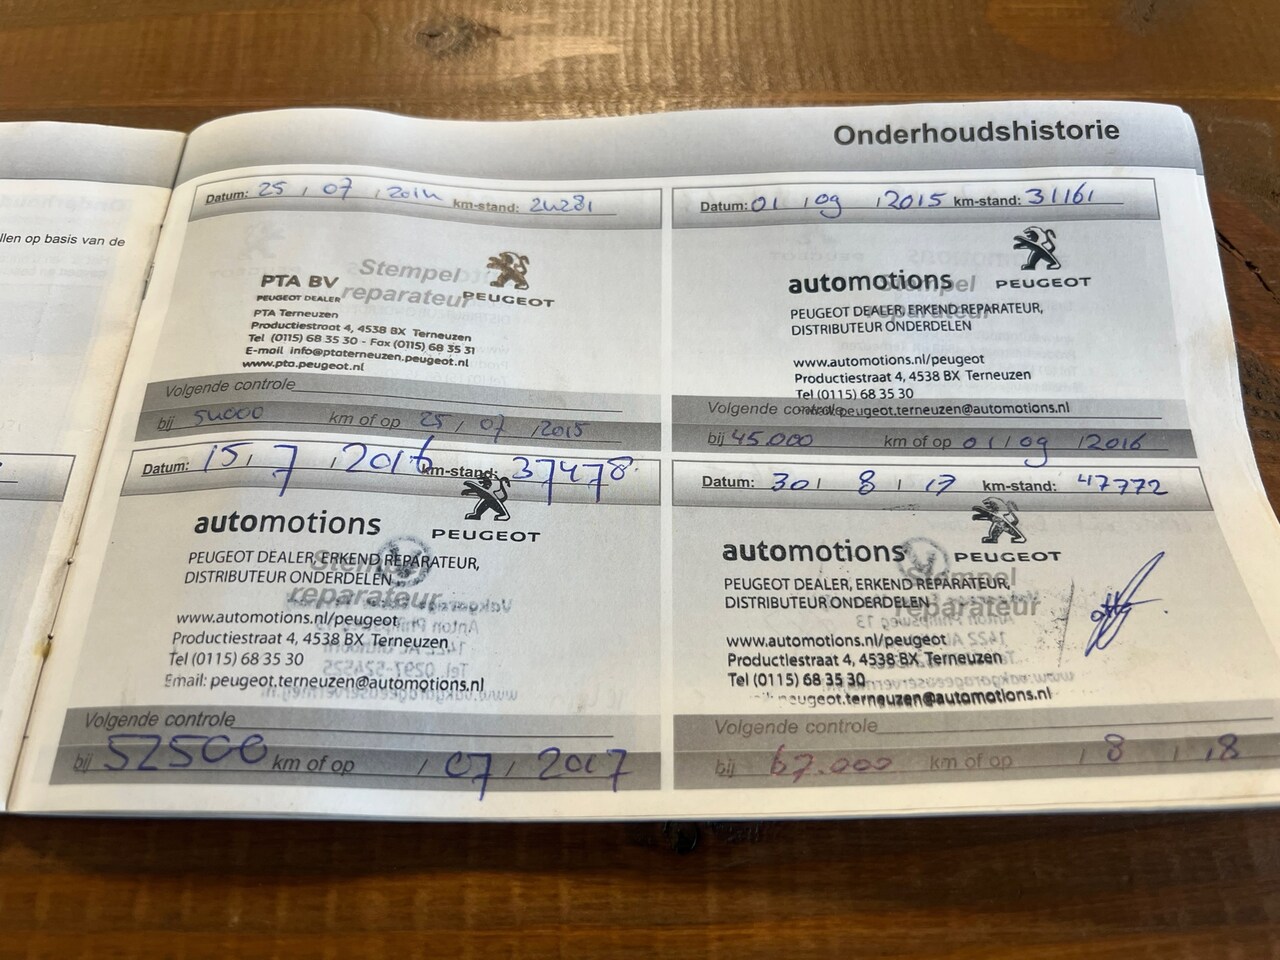 Onderhoudshistorie
llen op basis van de
Datum: 25 / 07 / 2014 km-stand: 24281
Stempel
reparateur
PTA BV
PEUGEOT DEALER
PEUGEOT
PTA Terneuzen
Productiestraat 4, 4538 BX Terneuzen
Tel (0115) 68 35 30 - Fax (0115) 68 35 31
E-mail info@ptaterneuzen.peugeot.nl
www.pta.peugeot.nl
Volgende controle
bij 54000 km of op 25 / 07 / 2015
Datum: 01 / 09 / 2015 km-stand: 31161
Stempel
reparateur
automotions PEUGEOT
PEUGEOT DEALER, ERKEND REPARATEUR,
DISTRIBUTEUR ONDERDELEN
www.automotions.nl/peugeot
Productiestraat 4, 4538 BX Terneuzen
Tel (0115) 68 35 30
peugeot.terneuzen@automotions.nl
Volgende controle
bij 45.000 km of op 01 / 09 / 2016
Datum: 15 / 7 / 2016 km-stand: 37478
automotions PEUGEOT
Stempel
reparateur
PEUGEOT DEALER, ERKEND REPARATEUR,
DISTRIBUTEUR ONDERDELEN
www.automotions.nl/peugeot
Productiestraat 4, 4538 BX Terneuzen
Tel (0115) 68 35 30
Email: peugeot.terneuzen@automotions.nl
Volgende controle
bij 52500 km of op / 07 / 2017
Datum: 30 / 8 / 17 km-stand: 47772
automotions PEUGEOT
Stempel
reparateur
PEUGEOT DEALER, ERKEND REPARATEUR,
DISTRIBUTEUR ONDERDELEN
www.automotions.nl/peugeot
Productiestraat 4, 4538 BX Terneuzen
Tel (0115) 68 35 30
peugeot.terneuzen@automotions.nl
Volgende controle
bij 67.000 km of op / 8 / 18